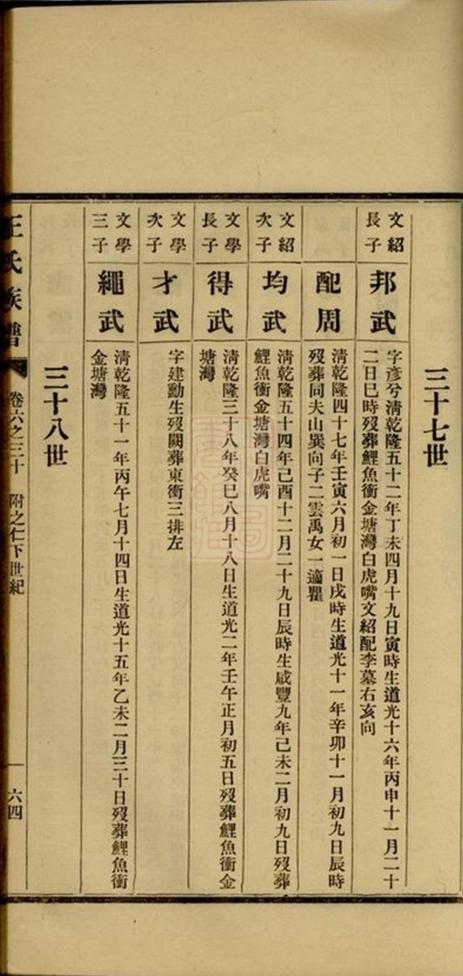 三十七世
文紹長子
邦武
字彥兮淸乾隆五十二年丁未四月十九日寅時生道光十六年丙申十一月二十
二日巳時歿葬鯉魚衝金塘灣白虎嘴文紹配李墓右亥向
配周
淸乾隆四十七年壬寅六月初一日戌時生道光十一年辛卯十一月初九日辰時
歿葬同夫山巽向子二雲禹女一適瞿
文紹次子
均武
淸乾隆五十四年己酉十二月二十九日辰時生咸豐九年己未二月初九日歿葬
鯉魚衝金塘灣白虎嘴
文學長子
得武
淸乾隆三十八年癸巳八月十八日生道光二年壬午正月初五日歿葬鯉魚衝金
塘灣
文學次子
才武
字建勳生歿闕葬東衝三排左
文學三子
繩武
淸乾隆五十一年丙午七月十四日生道光十五年乙未二月三十日歿葬鯉魚衝
金塘灣
三十八世
王氏族譜
卷六之三十 附之仁下世紀
六四